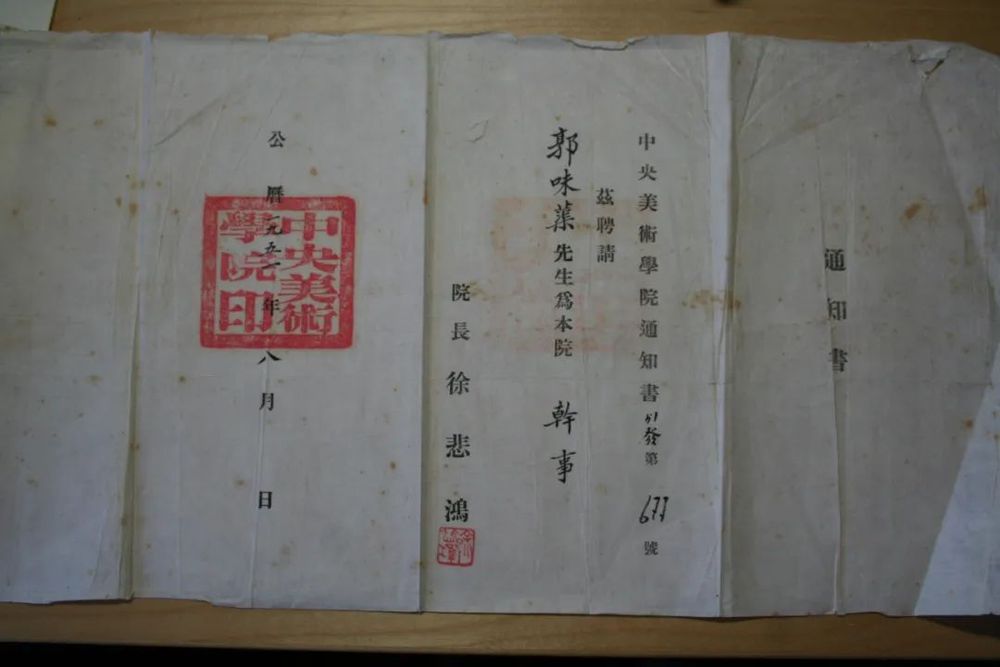 通知書
中央美術學院通知書51發第677號
茲聘請
郭味蕖先生爲本院 幹事
院長徐悲鴻
公曆一九五一年八月 日
中央美術學院印